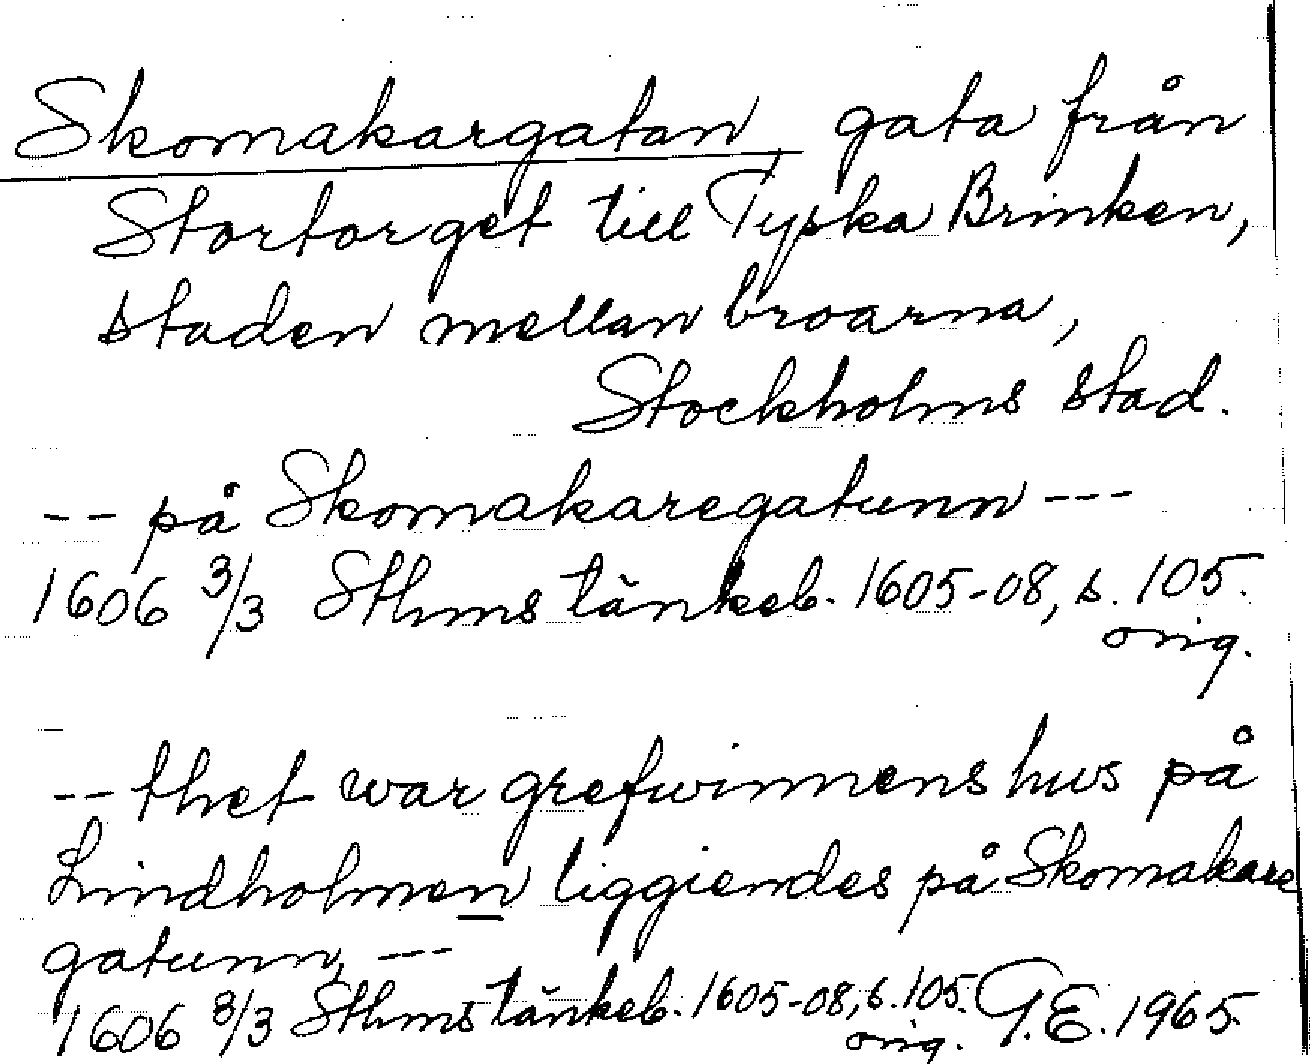 Skomakargatan, gata från
Stortorget till Tyska Brinken,
staden mellan broarna,
Stockholms stad.
-- på Skomakaregatunn ---
1606 3/3 Sthms tänkeb. 1605-08, s. 105.
orig.
-- thet war grefwinnens hus på
Lindholmen liggiendes på Skomakare
gatunn, ---
1606 3/3 Sthms tänkeb. 1605-08, s. 105.
orig. G.E. 1965.